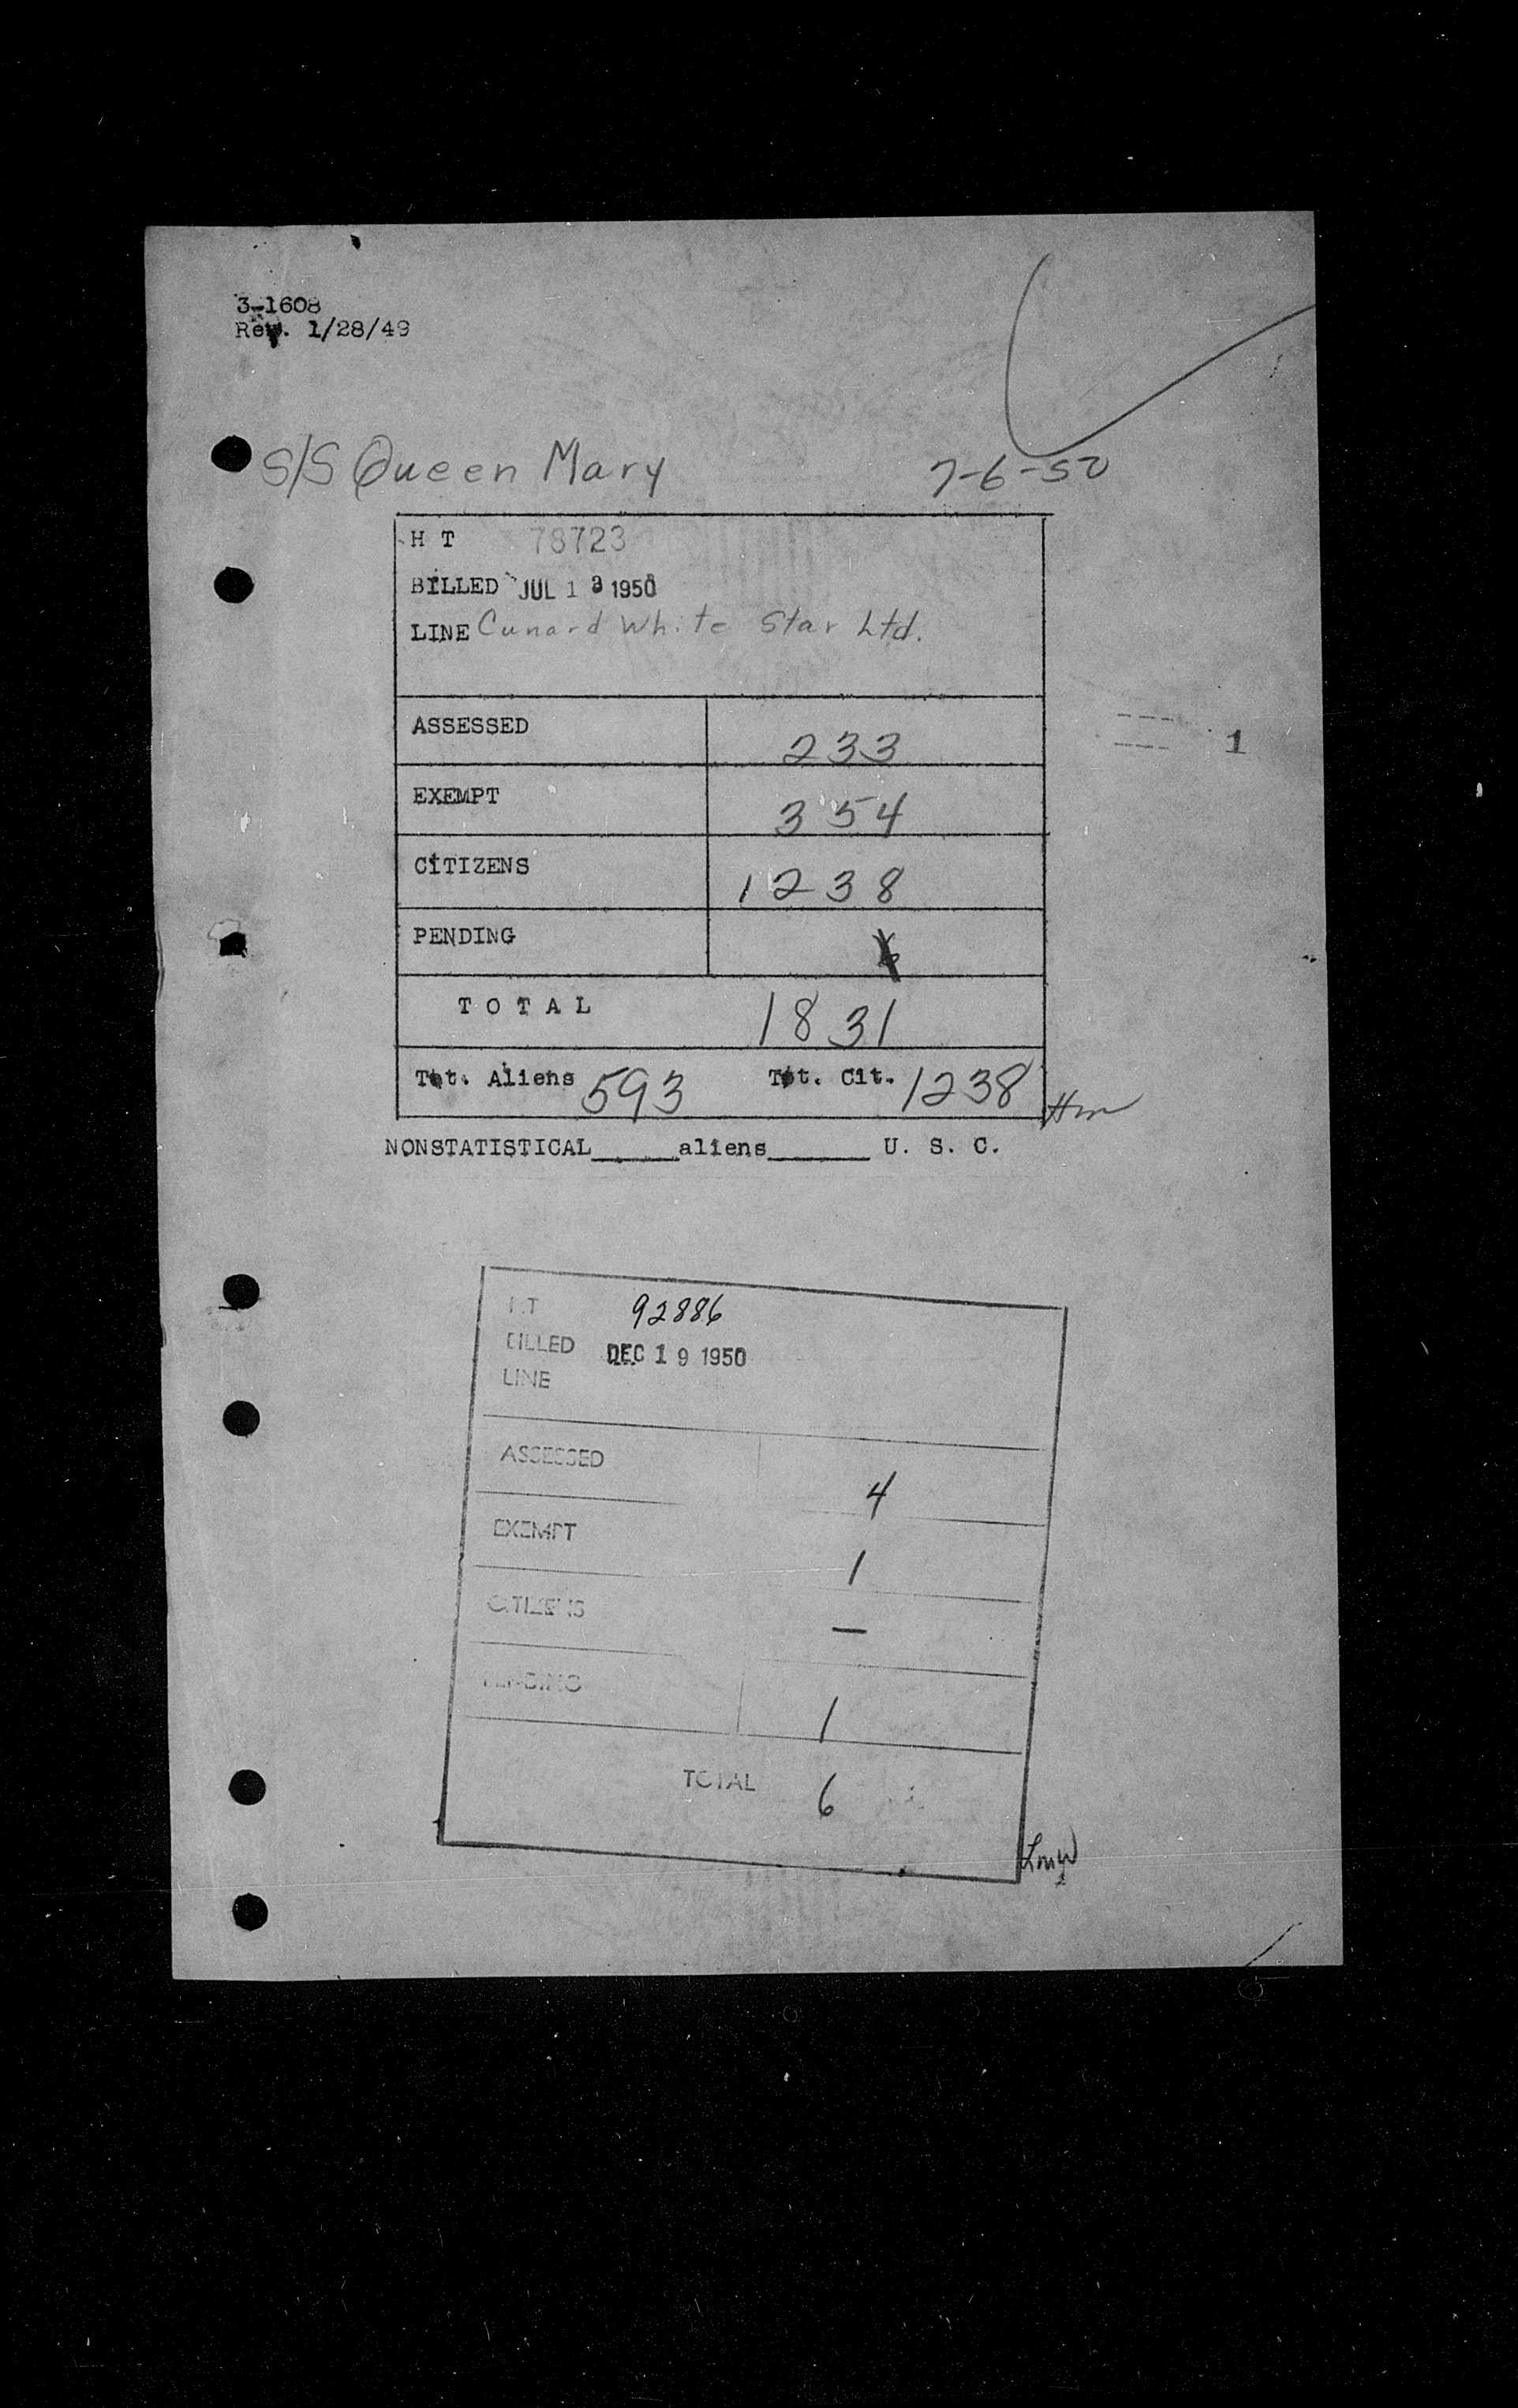 3-1608
Rev. 1/28/49
S/S Queen Mary 7-6-50
H T 78723
BILLED JUL 13 1950
LINE Cunard White Star Ltd.
ASSESSED 233
1
EXEMPT 354
CITIZENS 1238
PENDING 6
T O T A L 1831
Tot. Aliens 593 Tot. Cit. 1238
NONSTATISTICAL_____aliens______ U. S. C.
HT 92886
BILLED DEC 19 1950
LINE
ASSESSED 4
EXEMPT 1
CITIZENS —
PENDING 1
TOTAL 6